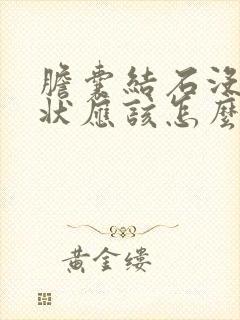 膽囊結石沒
狀應該怎麼
黃金缕